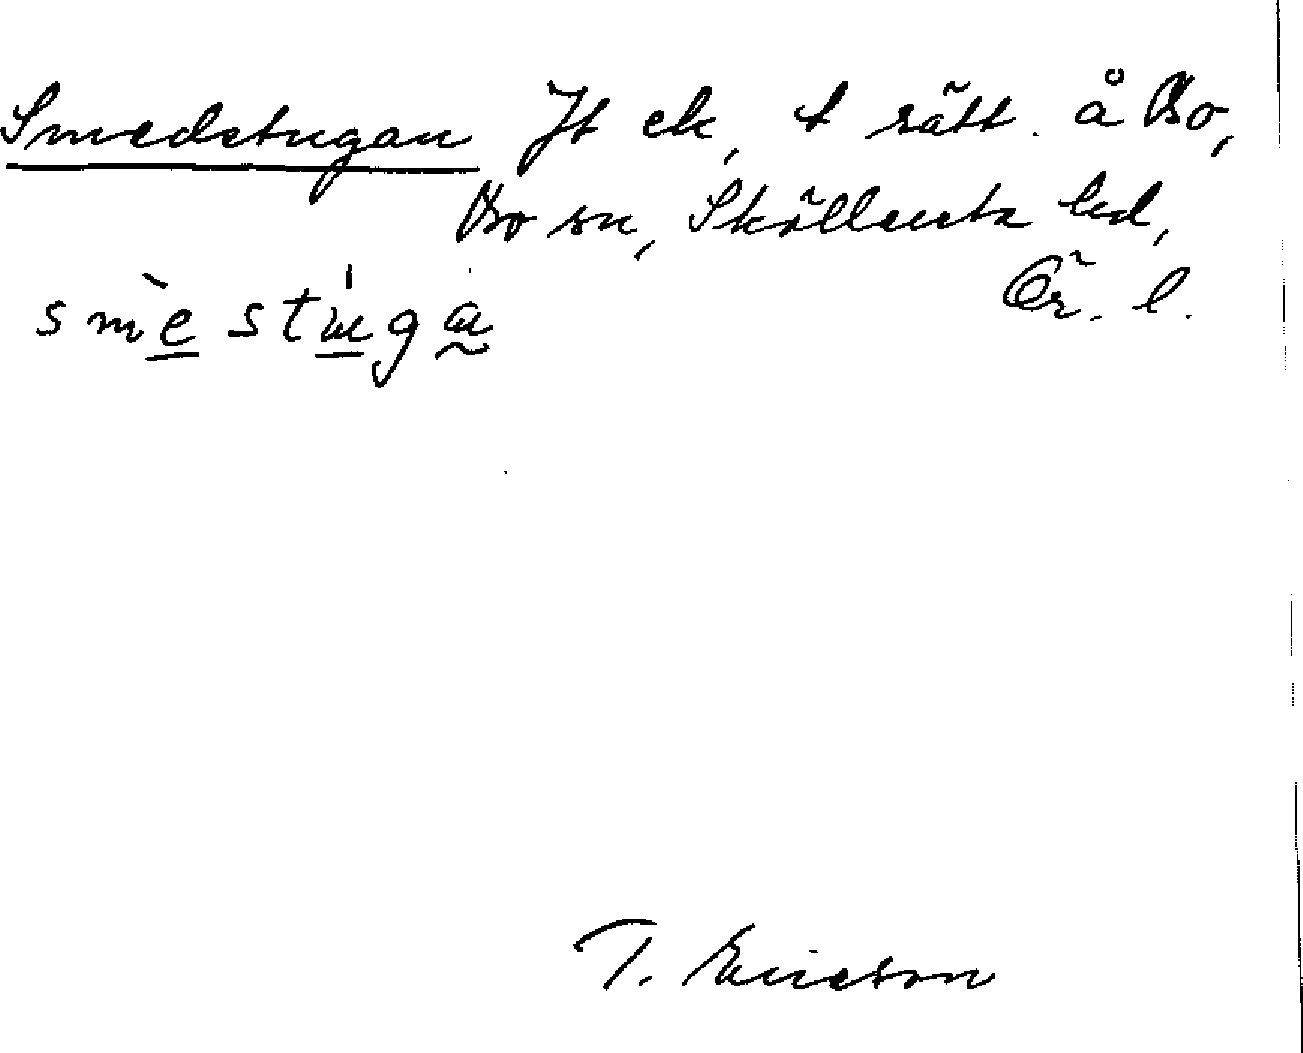 Smedstugan Jt ek, t rätt. å Bo,
Bo sn, Sköllersta hd,
Ör. l.
smèstúga
T. Ericson